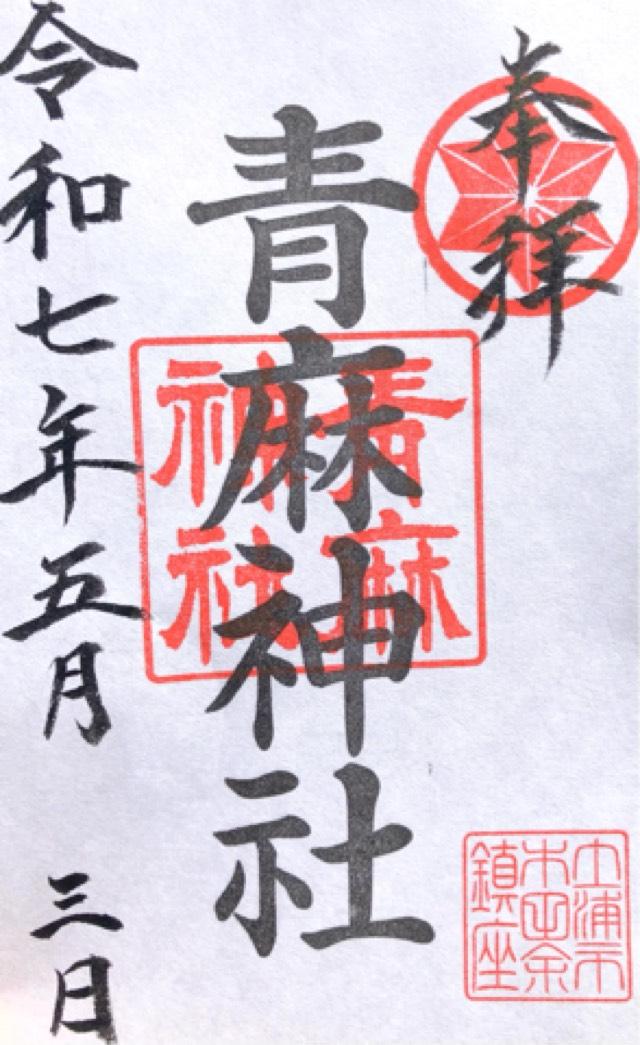 奉拝
青麻神社
青麻
神社
土浦市
木田余
鎮座
令和七年五月三日